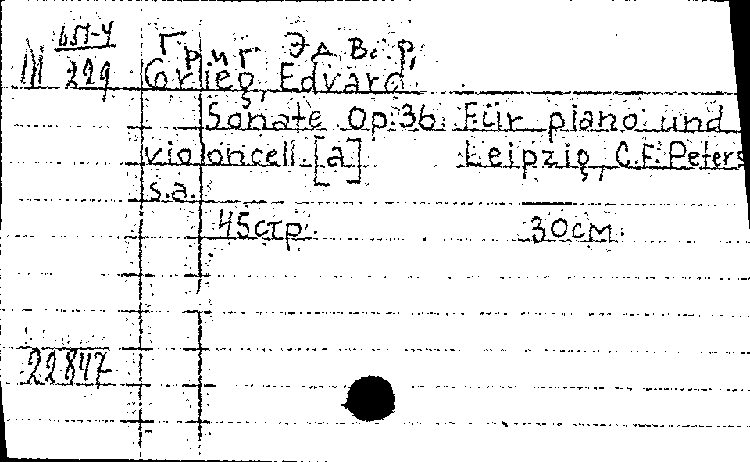 М 651-4
229
Григ Эдв. р,
Grieg, Edvard.
Sonate Op. 36. Für piano und
violoncell. [a] Leipzig, C.F. Peters
s.a.
45стр. 30см.
22847